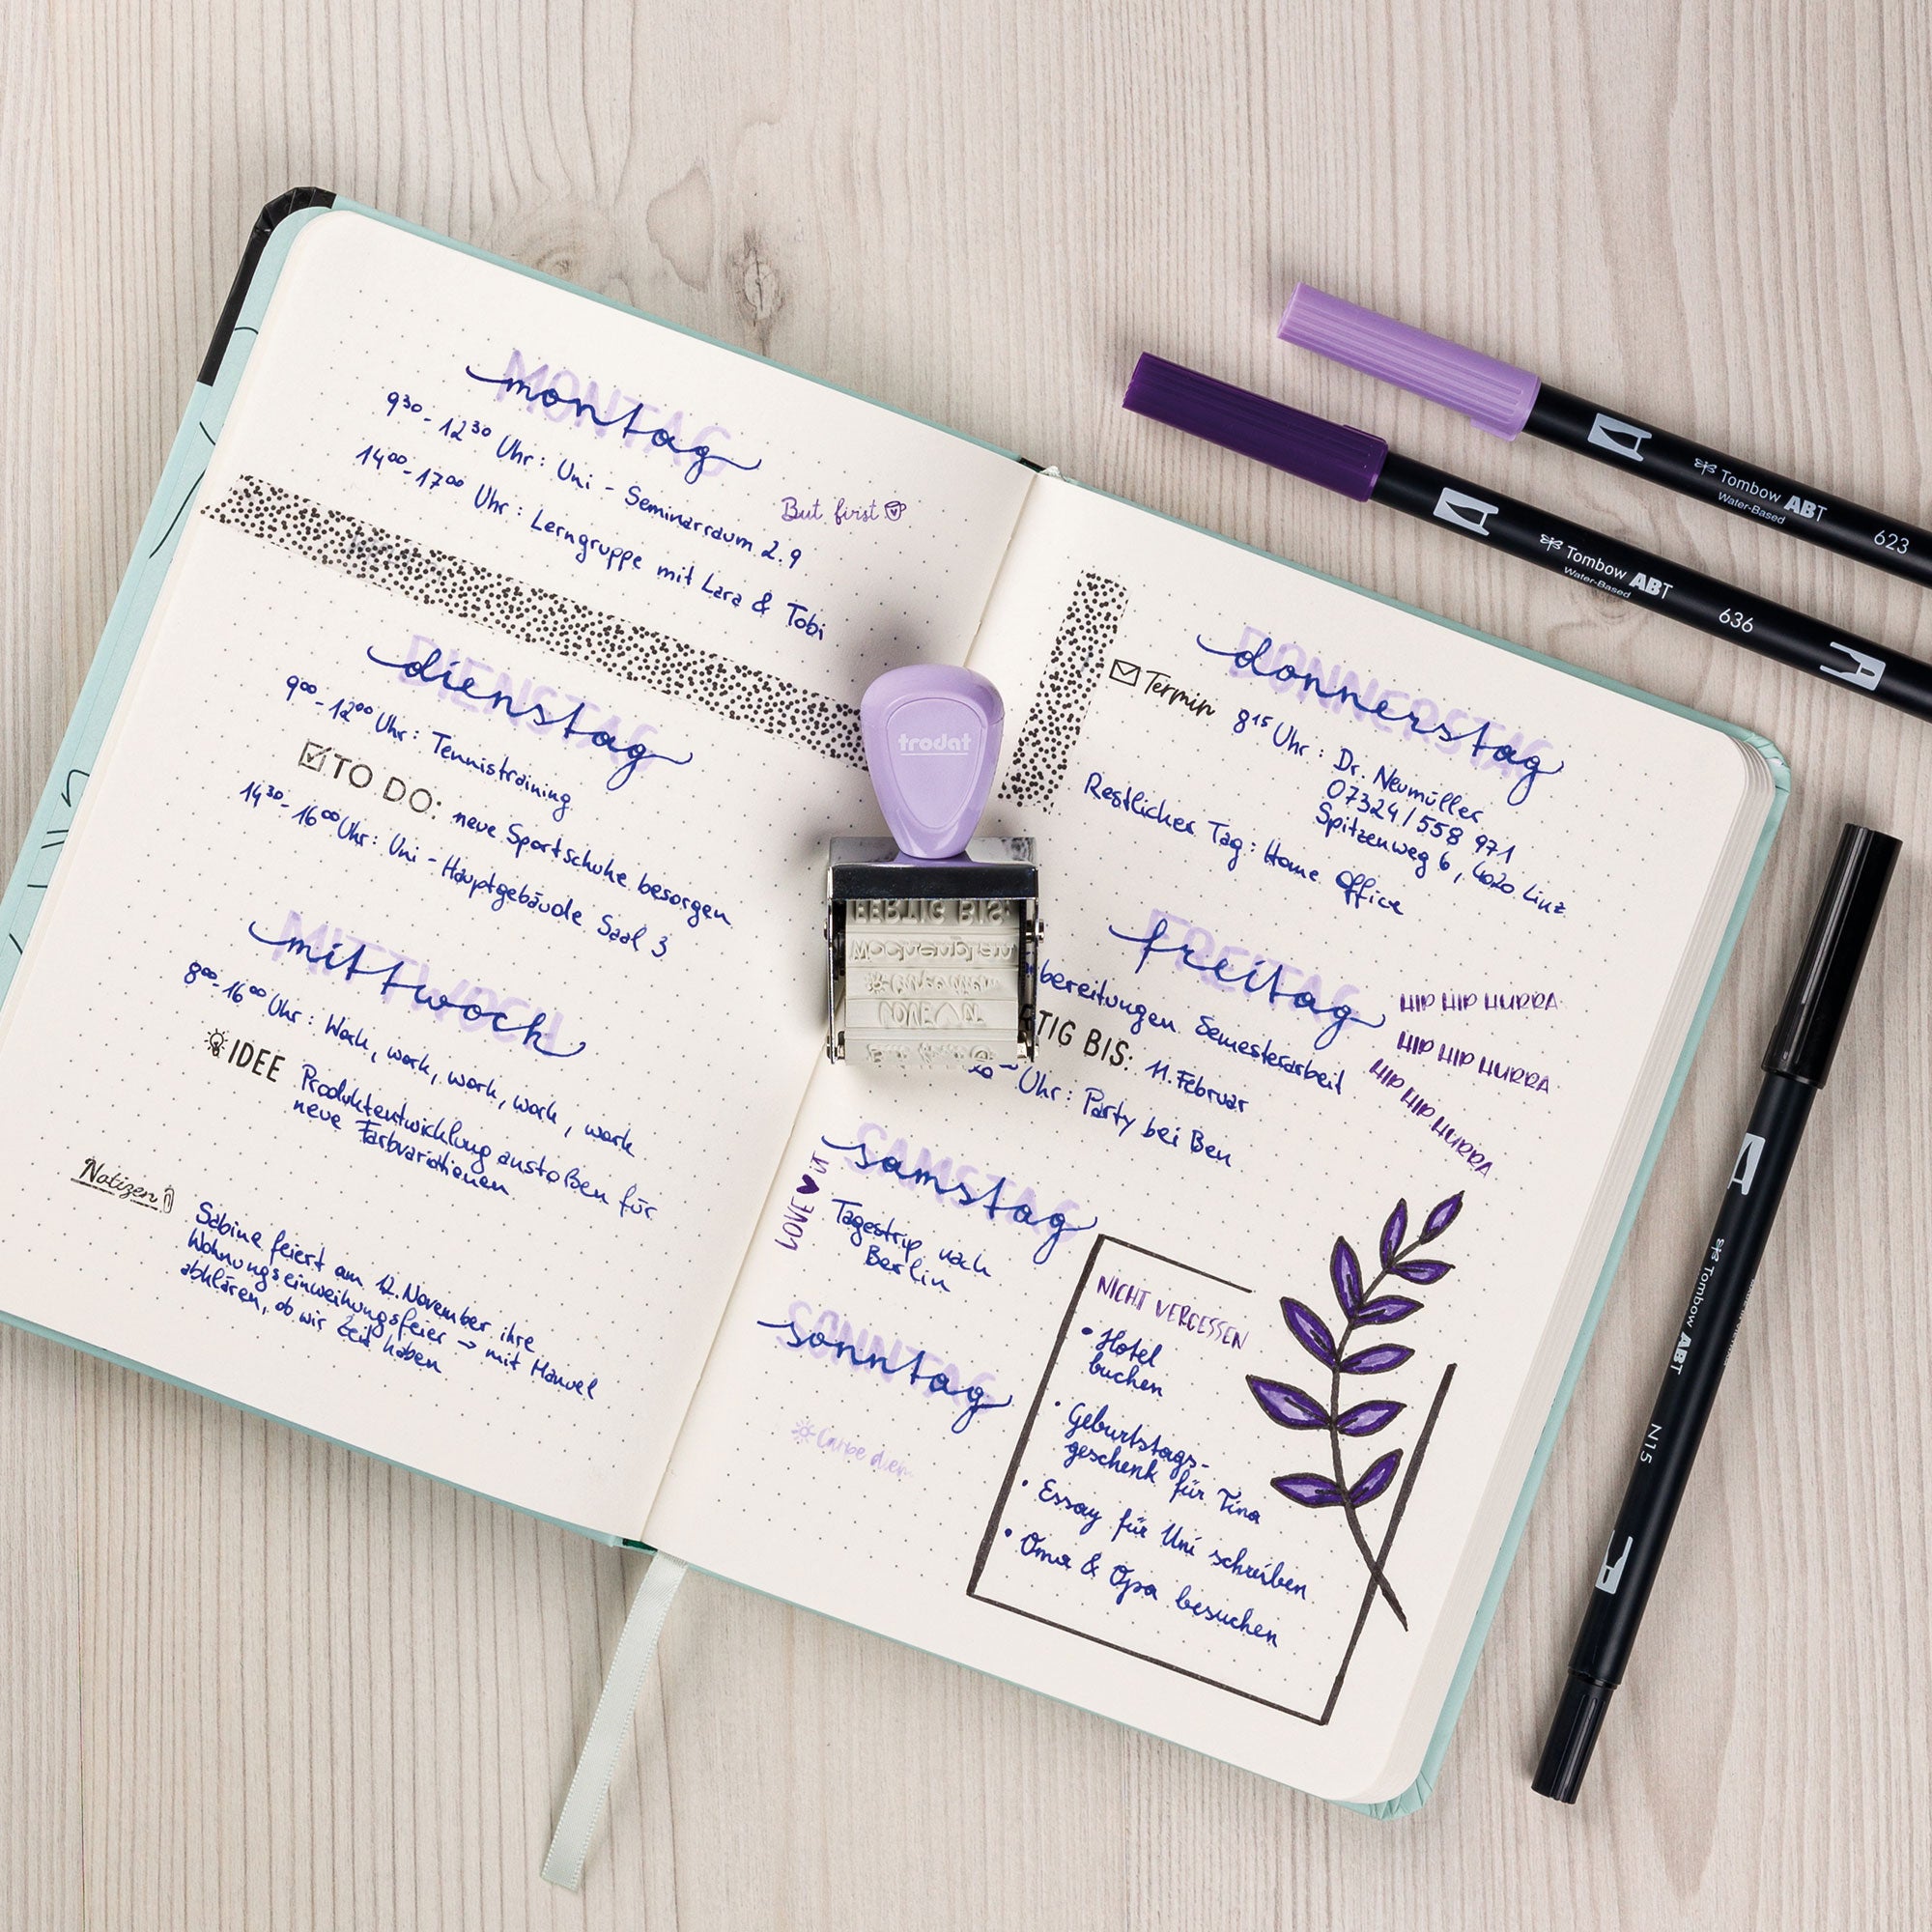 MONTAG
montag
9³⁰-12³⁰ Uhr: Uni - Seminarraum 2.9
14⁰⁰-17⁰⁰ Uhr: Lerngruppe mit Lara & Tobi
But first
DIENSTAG
dienstag
9⁰⁰-12⁰⁰ Uhr: Tennistraining
TO DO: neue Sportschuhe besorgen
14³⁰-16⁰⁰ Uhr: Uni - Hauptgebäude Saal 3
MITTWOCH
mittwoch
8⁰⁰-16⁰⁰ Uhr: Work, work, work, work, work
IDEE Produktentwicklung anstoßen für
neue Farbvariationen
Notizen
Sabine feiert am 12. November ihre
Wohnungseinweihungsfeier → mit Manuel
abklären, ob wir Zeit haben
trodat
FERTIG BIS:
Wochenplan
LOVE IT
But first
DONNERSTAG
donnerstag
Termin 8¹⁵ Uhr: Dr. Neumüller
07324/558 971
Spitzenweg 6, 4020 Linz
Restlicher Tag: Home Office
FREITAG
freitag
bereitungen Semesterarbeit
TIG BIS: 11. Februar
Uhr: Party bei Ben
HIP HIP HURRA
HIP HIP HURRA
HIP HIP HURRA
SAMSTAG
samstag
LOVE IT
Tagestrip nach
Berlin
SONNTAG
sonntag
Carpe diem
NICHT VERGESSEN
• Hotel
buchen
• Geburtstags-
geschenk für Tina
• Essay für Uni schreiben
• Oma & Opa besuchen
Tombow ABT
Water-Based
623
Tombow ABT
Water-Based
636
Tombow ABT
N15